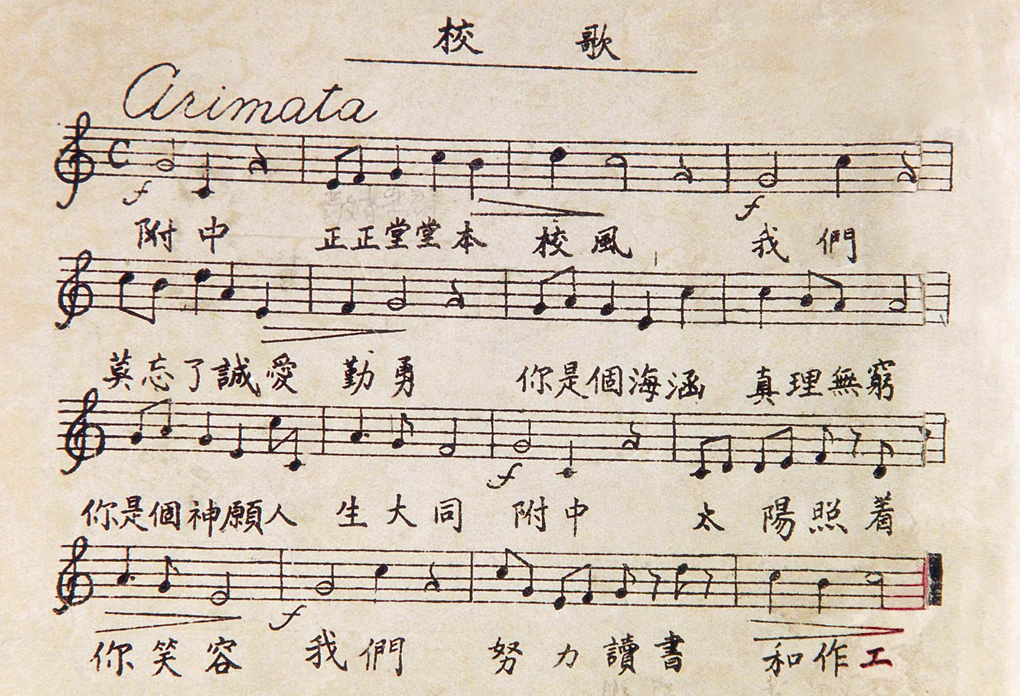 校歌
Arimata
C
f f
附中 正正堂堂本校風 我們
莫忘了誠愛勤勇 你是個海涵真理無窮
f
你是個神願人生大同 附中 太陽照着
f
你笑容 我們努力讀書和作工